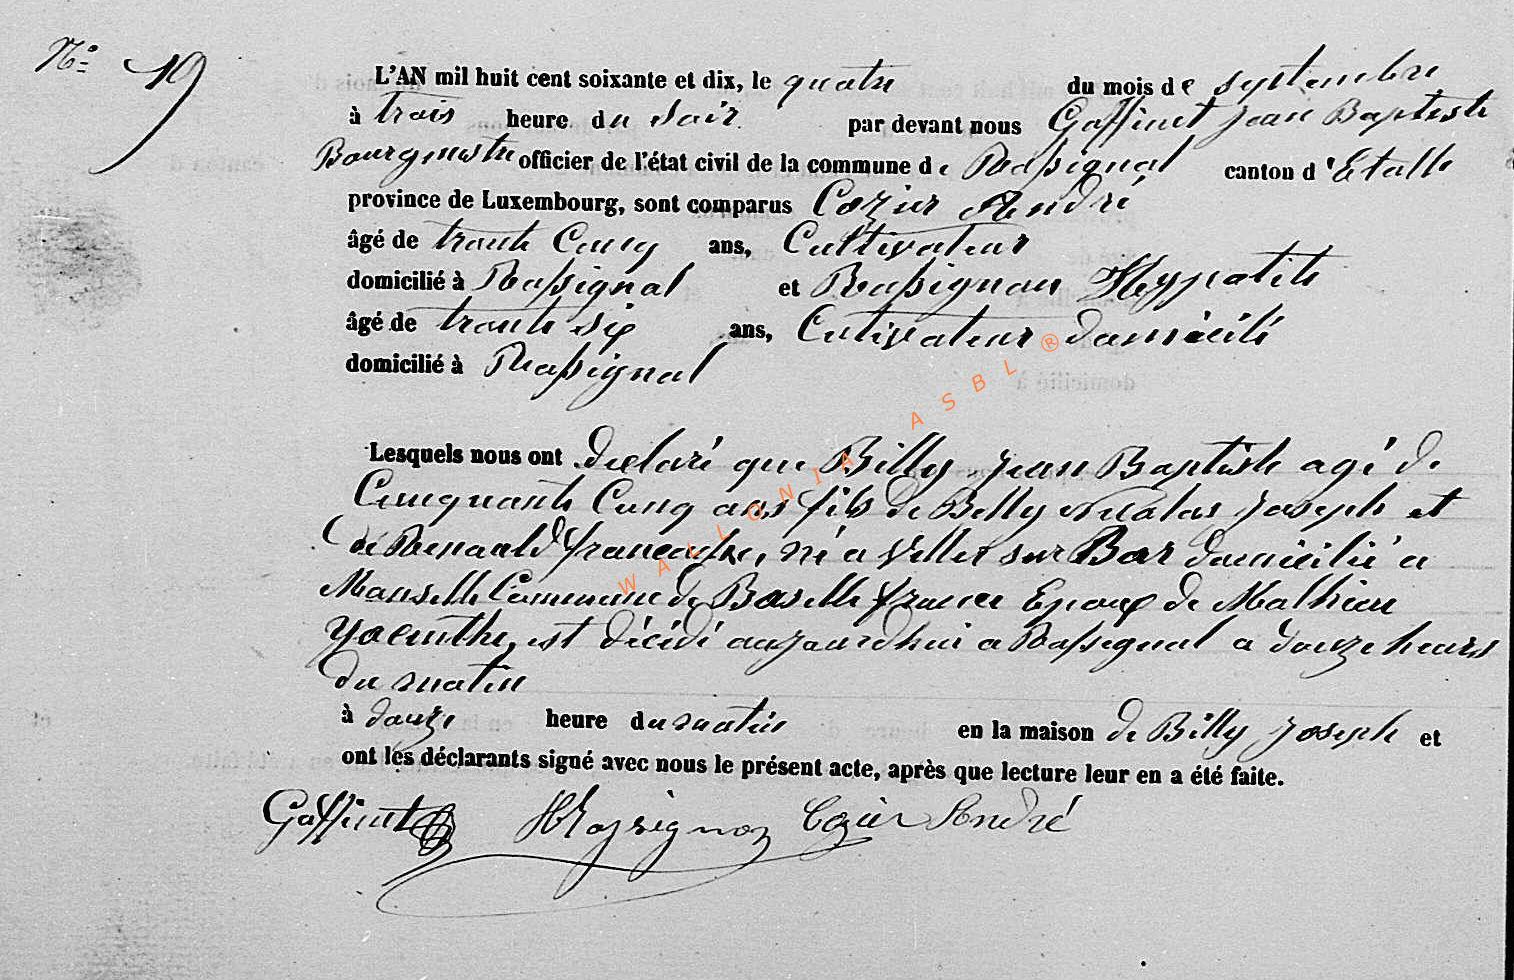 N° 19
L'AN mil huit cent soixante et dix, le quatre du mois de septembre
à trois heure du soir par devant nous Gaffinet Jean Baptiste
Bourgmestre officier de l'état civil de la commune de Rossignol canton d'Etalle
province de Luxembourg, sont comparus Cozier André
âgé de trente Cinq ans, Cultivateur
domicilié à Rossignol et Rossignon Hyppolite
âgé de trente six ans, Cutivateur domicilié
domicilié à Rossignol
Lesquels nous ont declaré que Billy Jean Baptiste agé de
Cinquante Cinq ans fils de Billy Nicolas Joseph et
de Renauld françoise, né a Viller sur Bar domicilié a
Commune de france Epoux de Mathieu
Yacinthe, est décédé aujourdhui a Rossignol a douze heures
du matin
à douze heure du matin en la maison de Billy Joseph et
ont les déclarants signé avec nous le présent acte, après que lecture leur en a été faite.
Gaffinet HRossignon Cozier André
WALLONIA ASBL ®